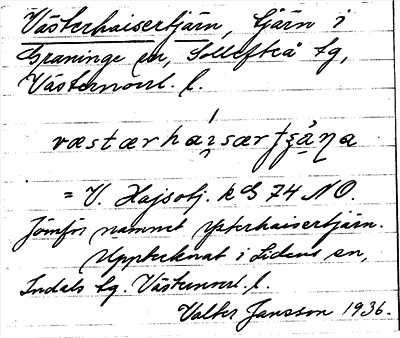 Västerhaisertjärn, tjärn i
Graninge sn, Sollefteå tg,
Västernorrl. l.
væstærhai̯særtʂä̉ɳa
= V. Hajsotj. k G 74 NO.
Jämför namnet Ysterhaisertjärn.
Upptecknat i Lidens sn,
Indals tg. Västernorrl. l.
Valter Jansson 1936.